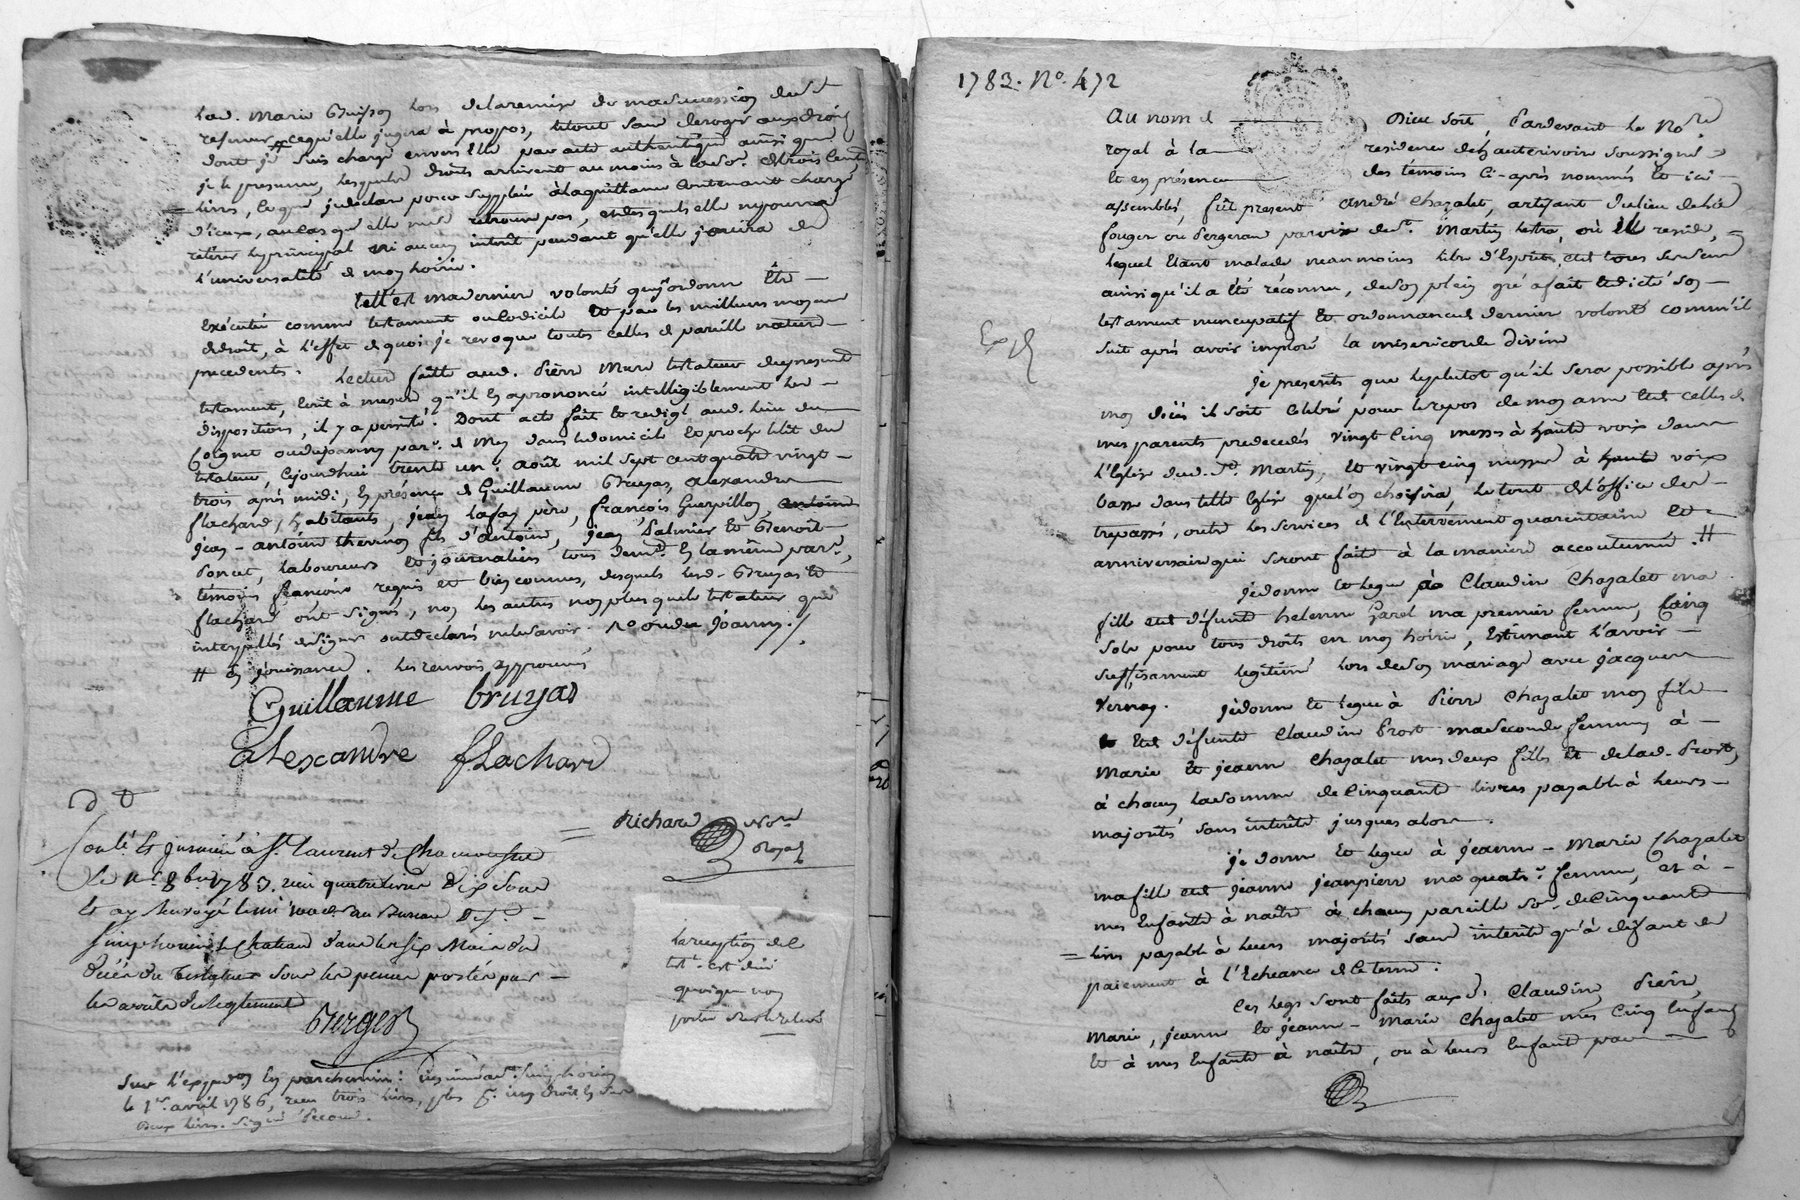 lad. Marie Buisson lors de la remise de ma succession de s'y
reserver ce qu'elle jugera à propos, le tout sans deroger aux droits
dont je suis chargé envers elle par acte authentique ainsi que
je le presume, lesquels droits arrivent au moins à la so.e de trois cents
livres, ce que je declare pour suppléer à la quittance contenant charge
d'iceux, au cas que elle ne se retrouve pas, et desquels elle ne pourra
retirer le principal ni aucun interêt pendant qu'elle jouira de
l'universalité de mon hoirie.
telle est ma derniere volonté que j'ordonne être
exécutée comme testament ou codicile et par les meilleurs moyens
de droit, à l'effet de quoi je revoque toutes celles de pareille nature
precedentes.
Lecture faite aud. Pierre testateur du present
testament, écrit à mesure qu'il en a prononcé intelligiblement les
dispositions, il y a persisté. Dont acte fait et redigé aud. lieu du
dans le domicile et proche le lit du
testateur, cejourd'hui trente un.e août mil sept cent quatre vingt
trois après midi, en présence de Guillaume Bruyas, alexandre
flachard, habitants, jean père, françois Guerpillon, antoine
jean - antoine thevenon fils d'antoine, jean Palmier et Benoît
Poncet, laboureurs et journaliers tous dem.t en la même par.e,
témoins requis et bien connus, desquels lesd. Bruyas et
flachard ont signés, non les autres non plus que le testateur qui
interpellés de signer ont declarés ne le savoir.
# en jouissance. les renvois approuvés
Guillaume bruyas
alexandre flachard
Richard No.re
Royal
Con.lé et insinué à St. Laurent de Chamousset
le 1er 8bre 1783. reçu quatre livres dix sous
et ay renvoyé l'insinuaon au Bureau de St.
Simphorien le Chateau dans les six Mois du
décès du testateur sous les peines portées par
les arrêts de Reglement
Berger
Sur l'expedon en parchemin: insinué à St. Simphorien
le 1er avril 1786, reçu trois livres,
deux livres. Signé
la reception de
test. est due
quoique non
portée
1783. No. 472
Au nom de Dieu soit, Pardevant le No.re
royal à la residence de hauterivoire soussigné
et en présence des témoins ci-après nommés et ici
assemblés, fût present andré Chazalet, artisant du lieu de
fouger ou Bergeron paroisse de St. Martin lestra, où il reside,
lequel étant malade neanmoins libre d'esprit, et de tous ses sens
ainsi qu'il a été réconnu, de son plein gré a fait et dicté son
testament nuncupatif et ordonnance de dernier volonté comm'il
suit après avoir imploré la miséricorde divine
Exp.é
Je prescrits que le plutot qu'il sera possible après
mon décès il soit célébré pour le repos de mon ame et de celles de
mes parents predecedés vingt cinq messes à haute voix dans
l'église dud. St. Martin, et vingt cinq messes à haute voix
basse dans telle église que l'on choisira, le tout de l'office des
trepassés, outre les services de l'enterrement quarentaine et
anniversaire qui seront fait à la maniere accoutumée. #
je donne et legue à Claudine Chazalet ma
fille et de défunte helenne Garol ma premiere femme, cinq
sols pour tous droits en mon hoirie, estimant l'avoir
suffisament legitimé lors de son mariage avec jacques
Vernay. je donne et legue à Pierre Chazalet mon fils
et de défunte Claudine Prost ma seconde femme, à
Marie et jeanne Chazalet mes deux filles et de lad. Prost,
à chacun la somme de cinquante livres payable à leurs
majorités sans interêts jusques alors.
je donne et legue à jeanne - Marie Chazalet
ma fille et de jeanne jeanpierre ma quatr.e femme, et à
mes enfants à naître à chacun pareille so.e de cinquante
livres payable à leurs majorités sans interêts qu'à défaut de
paiement à l'écheance de ce terme.
Ces legs sont faits auxd. Claudine, Pierre,
Marie, jeanne et jeanne - Marie Chazalet mes cinq enfans
et à mes enfants à naître, ou à leurs enfants par